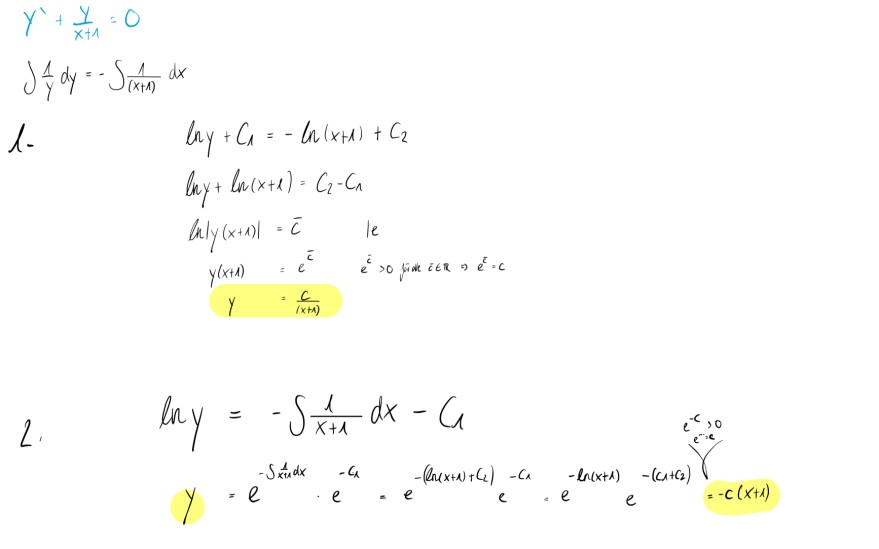 y` + y/(x+1) = 0
∫ 1/y dy = - ∫ 1/(x+1) dx
1.
ln y + C₁ = - ln(x+1) + C₂
ln y + ln(x+1) = C₂ - C₁
ln|y(x+1)| = c̄ |e
y(x+1) = e^c̄ e^c̄ > 0 für alle c̄∈ℝ ⇒ e^c̄ = c
y = c/(x+1)
2.
ln y = - ∫ 1/(x+1) dx - C₁
e^-c > 0
y = e^(-∫ 1/(x+1) dx) · e^(-C₁) = e^(-(ln(x+1)+C₂)) e^(-C₁) = e^(-ln(x+1)) e^(-(C₁+C₂)) = -c(x+1)